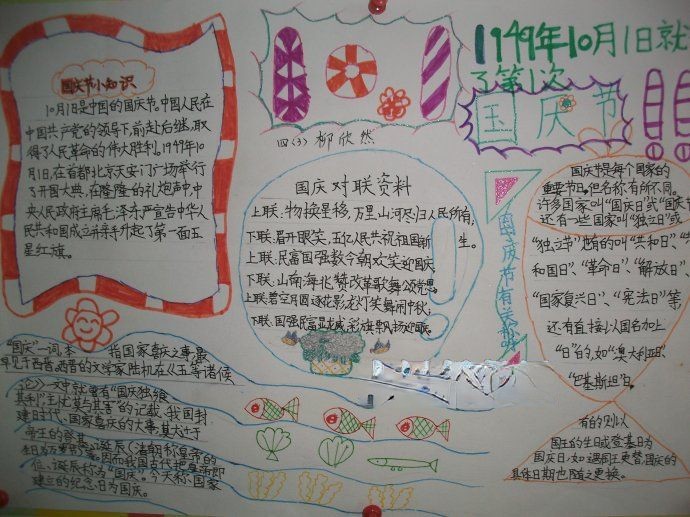 国庆节小知识
10月1日是中国的国庆节。中国人民在
中国共产党的领导下,前赴后继,取
得了人民革命的伟大胜利。1949年10
月1日,在首都北京天安门广场举行
了开国大典,在隆隆的礼炮声中,中
央人民政府主席毛泽东严宣告中华人
民共和国成立并亲手升起了第一面五
星红旗。
四(3) 柳欣然
1949年10月1日就
了第1次
国庆节
国庆对联资料
上联:物换星移,万里山河尽归人民所有,
下联:眉开眼笑,五亿人民共祝祖国新生。
上联:民富国强数今朝欢笑迎国庆,
下联:山南海北赞改革歌舞颂党恩。
上联:碧空月圆逐花影龙灯笑舞闹中秋;
下联:国强民富显龙威彩旗飘扬迎国庆。
国庆节有关
国庆节是每个国家的
重要节日,但名称有所不同。
许多国家叫“国庆日”或“国庆节
还有一些国家叫“独立日”或
“独立节”也有的叫“共和日”、“共
和国日”、“革命日”、“解放日”、
“国家复兴日”、“宪法日”等,
还有直接以国名加上
“日”的,如“澳大利亚日”、
“巴基斯坦日”。
有的则以
国王的生日或登基日为
国庆日,如遇国王更替,国庆的
具体日期也随之更换。
“国庆”一词,本 指国家喜庆之事,最
早见于西晋。西晋的文学家陆机在《五等诸侯
论》一文中就曾有“国庆独飨
其利,主忧莫与其害”的记载、我国封
建时代、国家喜庆的大事,莫大过于
帝王的登基、诞辰(清朝称皇帝的
因而我国古代把皇帝即
位、诞辰称为“国庆”。今天称国家
建立的纪念日为国庆。